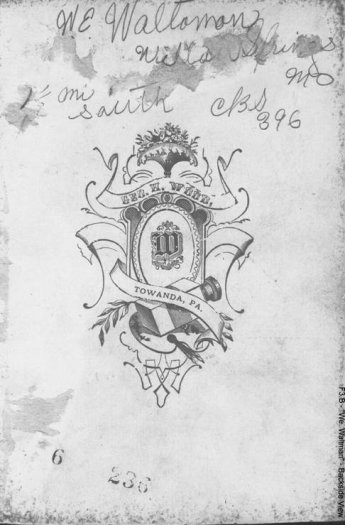 WE Waltomon
Springs
Mo
1½ mi
South CBS
396
GEO. H. WOOD.
W
TOWANDA, PA.
6 236
F3.B - "We. Waltman" Backside view